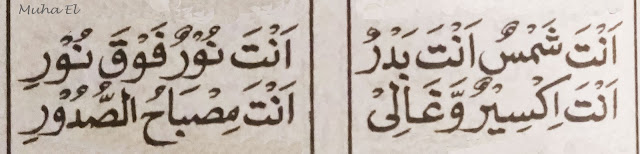 Muha El
اَنْتَ شَمْسٌ اَنْتَ بَدْرٌ اَنْتَ نُوْرٌ فَوْقَ نُوْرٍ
اَنْتَ اِكْسِيْرٌ وَّغَالِىْ اَنْتَ مِصْبَاحُ الصُّدُوْرِ